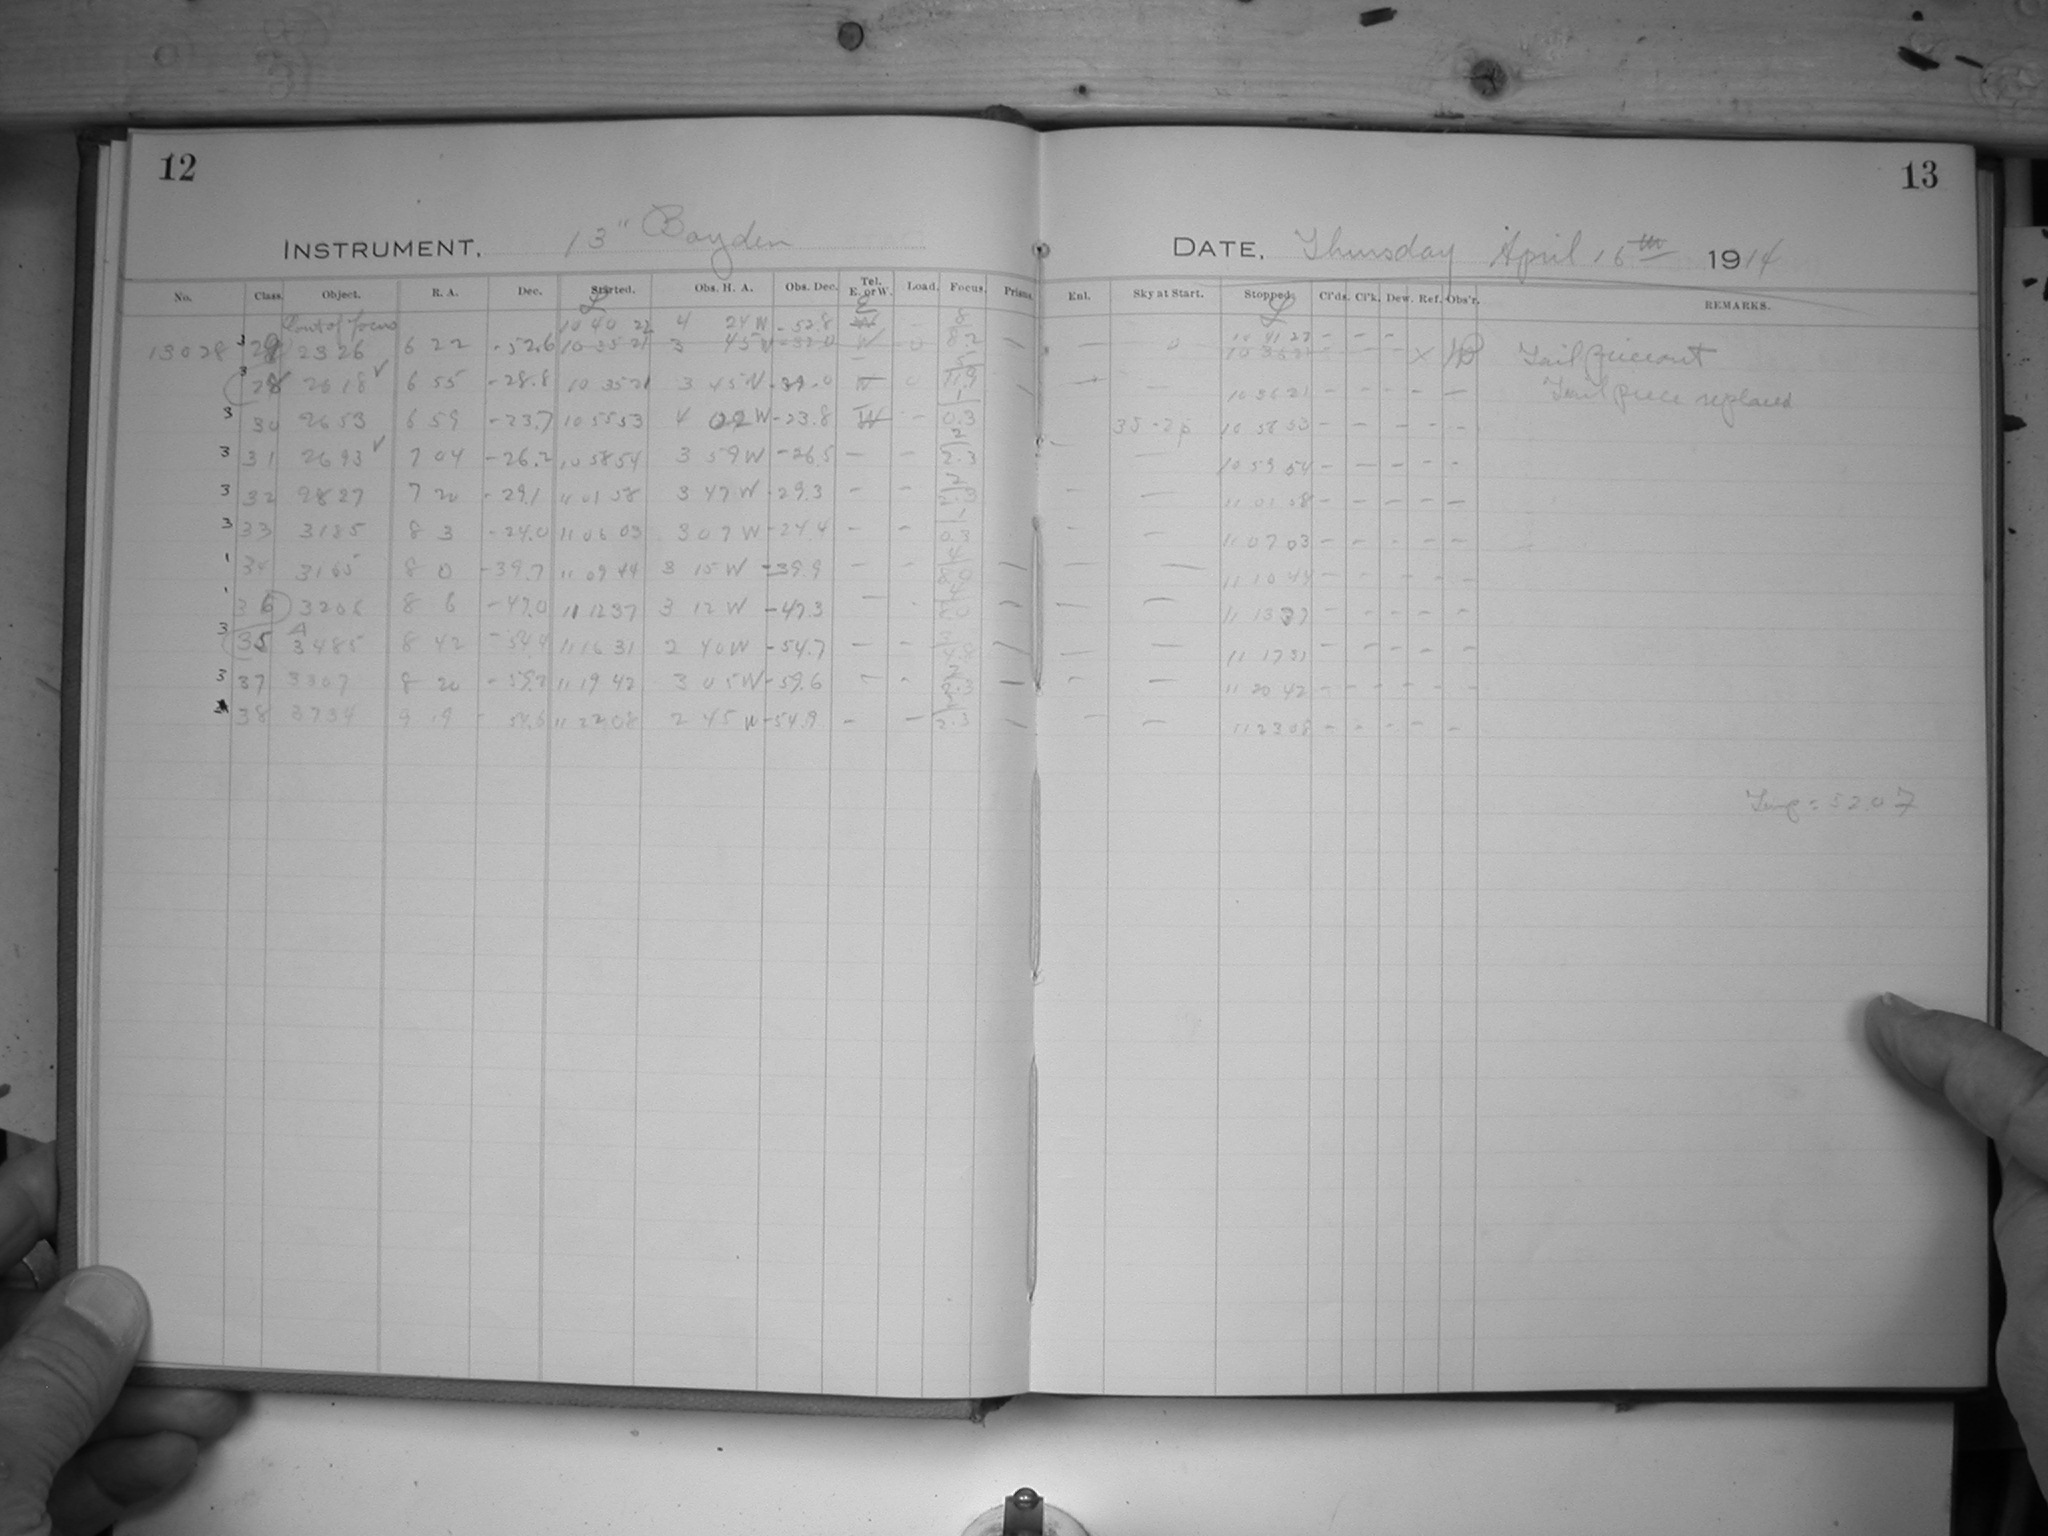 12
13
INSTRUMENT. 13" Boyden
DATE. Thursday April 16th 1914
No. Class. Object. R. A. Dec. Started. Obs. H. A. Obs. Dec. Tel. E. or W. Load. Focus. Prisms. Enl. Sky at Start. Stopped. Cl'ds. Cl'k. Dew. Ref. Obs'r. REMARKS.
L E L
out of focus 10 40 22 4 24 W -52.8 10 41 22 - - -
13028 3 29 2326 6 22 -52.6 10 35 21 3 45 W W 0 8.2 - 0 - - - X Tail piece out
3 28 2618 ✓ 6 55 -28.8 10 35 21 3 45 W W 0 11.9 - - 10 36 21 - - - - - Tail piece replaced
3 30 2653 6 59 -23.7 10 55 53 4 02 W -23.8 W - 0.3 10 56 53 - - - - -
3 31 2693 ✓ 7 04 -26.2 10 58 54 3 59 W -26.5 - - 2.3 - - 10 59 54 - - - - -
3 32 2827 7 20 -29.1 3 47 W -29.3 - - - - - - - - -
3 33 3185 8 3 -24.0 11 06 03 3 07 W -24.4 - - 0.3 - - 11 07 03 - - - - -
1 34 3165 8 0 -39.7 11 09 44 3 15 W -39.9 - - - - - 11 10 44 - - - - -
1 36 8 6 -47.0 11 12 37 3 12 W -47.3 - - - - - 11 13 37 - - - - -
3 35 3485 8 42 -54.4 11 16 31 2 40 W -54.7 - - - - - 11 17 31 - - - - -
3 37 3307 8 20 11 19 42 3 05 W -59.6 - - - - - 11 20 42 - - - - -
38 3734 9 19 - 54.6 11 22 08 2 45 W -54.9 - - 2.3 - - - 11 23 08 - - - - -
Temp = 52.0 F